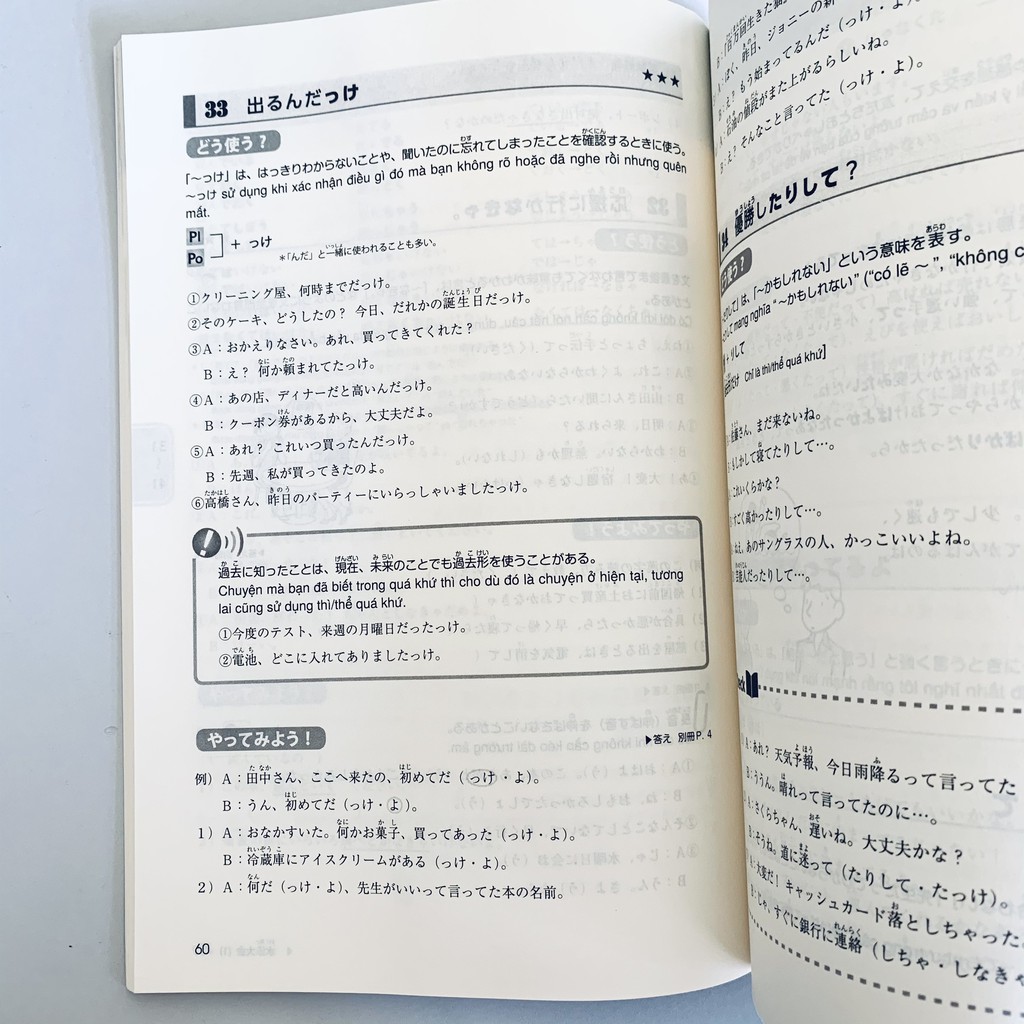 33 出るんだっけ
★★★
どう使う？
「～っけ」は、はっきりわからないことや、聞いたのに忘れてしまったことを確認するときに使う。
～っけ sử dụng khi xác nhận điều gì đó mà bạn không rõ hoặc đã nghe rồi nhưng quên
mất.
Pl
Po
+ っけ
＊「んだ」と一緒に使われることも多い。
①クリーニング屋、何時までだっけ。
②そのケーキ、どうしたの？ 今日、だれかの誕生日だっけ。
③A：おかえりなさい。あれ、買ってきてくれた？
B：え？ 何か頼まれてたっけ。
④A：あの店、ディナーだと高いんだっけ。
B：クーポン券があるから、大丈夫だよ。
⑤A：あれ？ これいつ買ったんだっけ。
B：先週、私が買ってきたのよ。
⑥高橋さん、昨日のパーティーにいらっしゃいましたっけ。
過去に知ったことは、現在、未来のことでも過去形を使うことがある。
Chuyện mà bạn đã biết trong quá khứ thì cho dù đó là chuyện ở hiện tại, tương
lai cũng sử dụng thì/thể quá khứ.
①今度のテスト、来週の月曜日だったっけ。
②電池、どこに入れてありましたっけ。
やってみよう！
▶答え 別冊P. 4
例）A：田中さん、ここへ来たの、初めてだ（っけ・よ）。
B：うん、初めてだ（っけ・よ）。
1）A：おなかすいた。何かお菓子、買ってあった（っけ・よ）。
B：冷蔵庫にアイスクリームがある（っけ・よ）。
2）A：何だ（っけ・よ）、先生がいいって言ってた本の名前。
60
B：え？ もう始まってるんだ（っけ・よ）。
値段がまた上がるらしいね。
B：え？ そんなこと言ってた（っけ・よ）。
優勝したりして？
は、「～かもしれない」という意味を表す。
mang nghĩa “～かもしれない” (“có lẽ ～”, “không
Chỉ là thì/thể quá khứ]
さん、まだ来ないね。
もしかして寝てたりして…。
これいくらかな？
すごく高かったりして…。
ねえ、あのサングラスの人、かっこいいよね。
人だったりして…。
A：あれ？ 天気予報、今日雨降るって言ってた
B：ううん。晴れって言ってたのに…。
A：さくらちゃん、遅いね。大丈夫かな？
B：そうね。道に迷って（たりして・たっけ）。
A：大変だ！ キャッシュカード落としちゃった
B：じゃ、すぐに銀行に連絡（しちゃ・しなきゃ